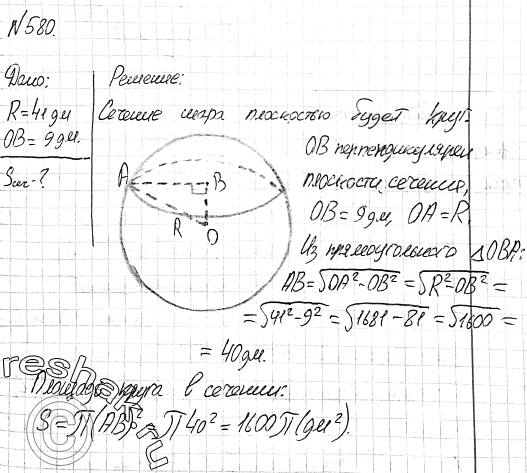 №580.
Дано:
R=41дм
OB=9дм.
Sсеч-?
Решение:
Сечение шара плоскостью будет круг.
OB перпендикулярен
плоскости сечения,
OB=9дм, OA=R.
Из прямоугольного △OBA:
AB=√OA²-OB² = √R²-OB² =
=√41²-9² = √1681-81 = √1600 =
= 40дм.
Площадь круга в сечении:
S=π(AB)²=π40²=1600π(дм²).
A
B
R
O
reshak.ru
©